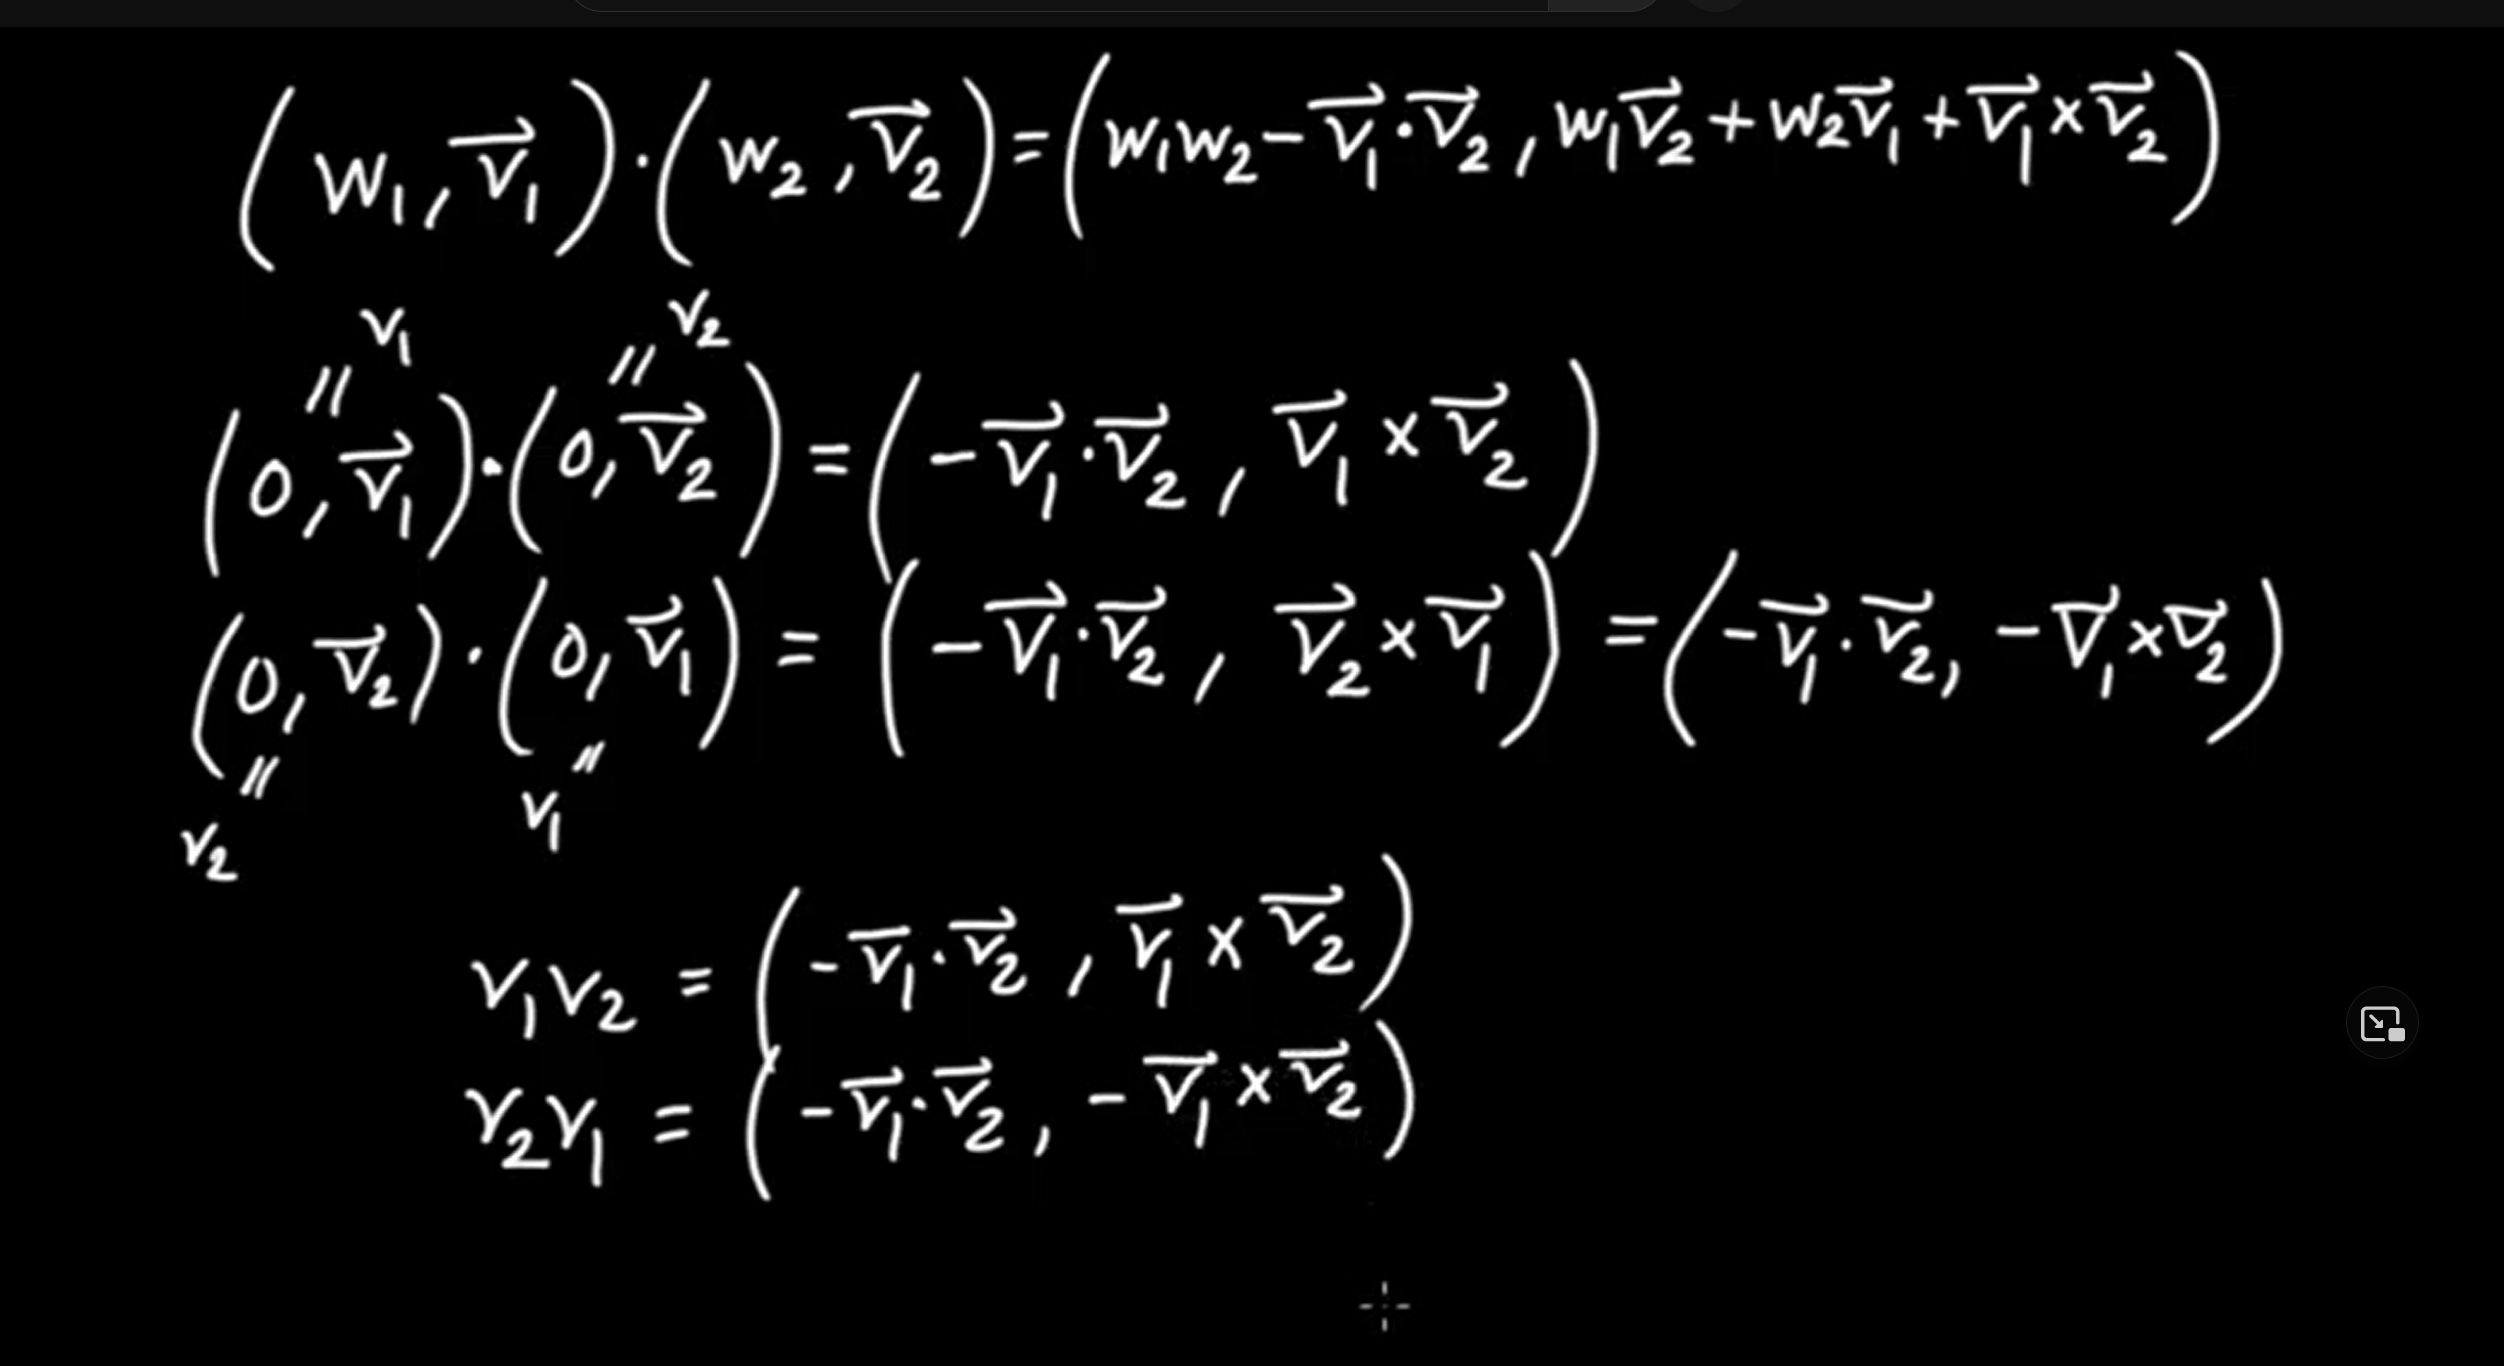 (w₁, v⃗₁) · (w₂, v⃗₂) = (w₁w₂ - v⃗₁ · v⃗₂, w₁v⃗₂ + w₂v⃗₁ + v⃗₁ × v⃗₂)
v₁ v₂
= =
(0, v⃗₁) · (0, v⃗₂) = (- v⃗₁ · v⃗₂, v⃗₁ × v⃗₂)
(0, v⃗₂) · (0, v⃗₁) = (- v⃗₁ · v⃗₂, v⃗₂ × v⃗₁) = (- v⃗₁ · v⃗₂, - v⃗₁ × v⃗₂)
= =
v₂ v₁
v₁v₂ = (- v⃗₁ · v⃗₂, v⃗₁ × v⃗₂)
v₂v₁ = (- v⃗₁ · v⃗₂, - v⃗₁ × v⃗₂)